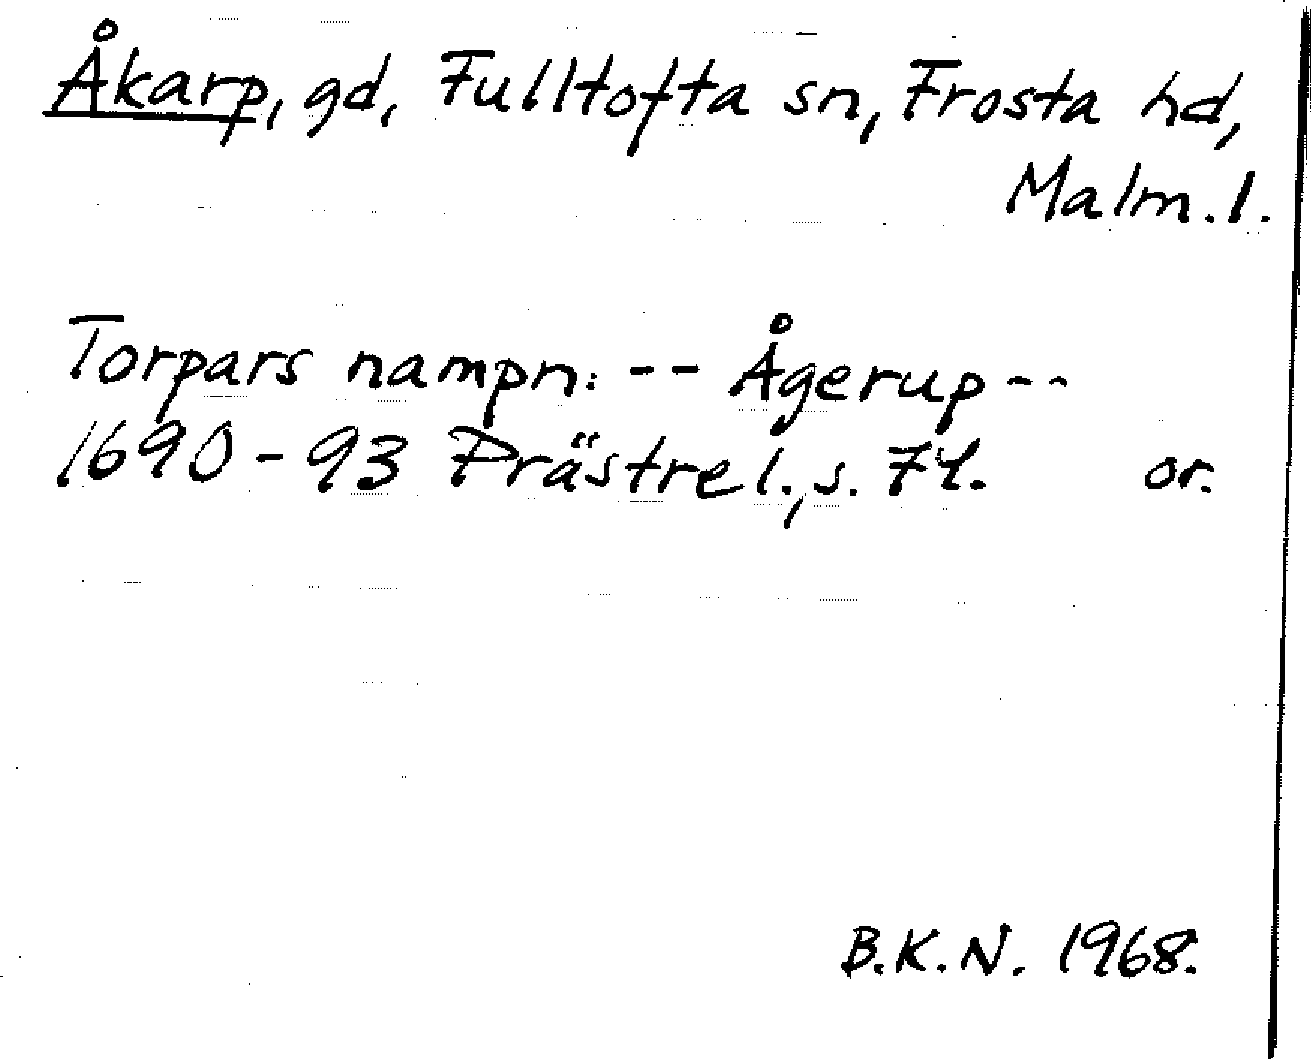 Åkarp, gd, Fulltofta sn, Frosta hd,
Malm. l.
Torpars nampn: -- Ågerup --
1690-93 Prästrel., s. 71. or.
B.K.N. 1968.